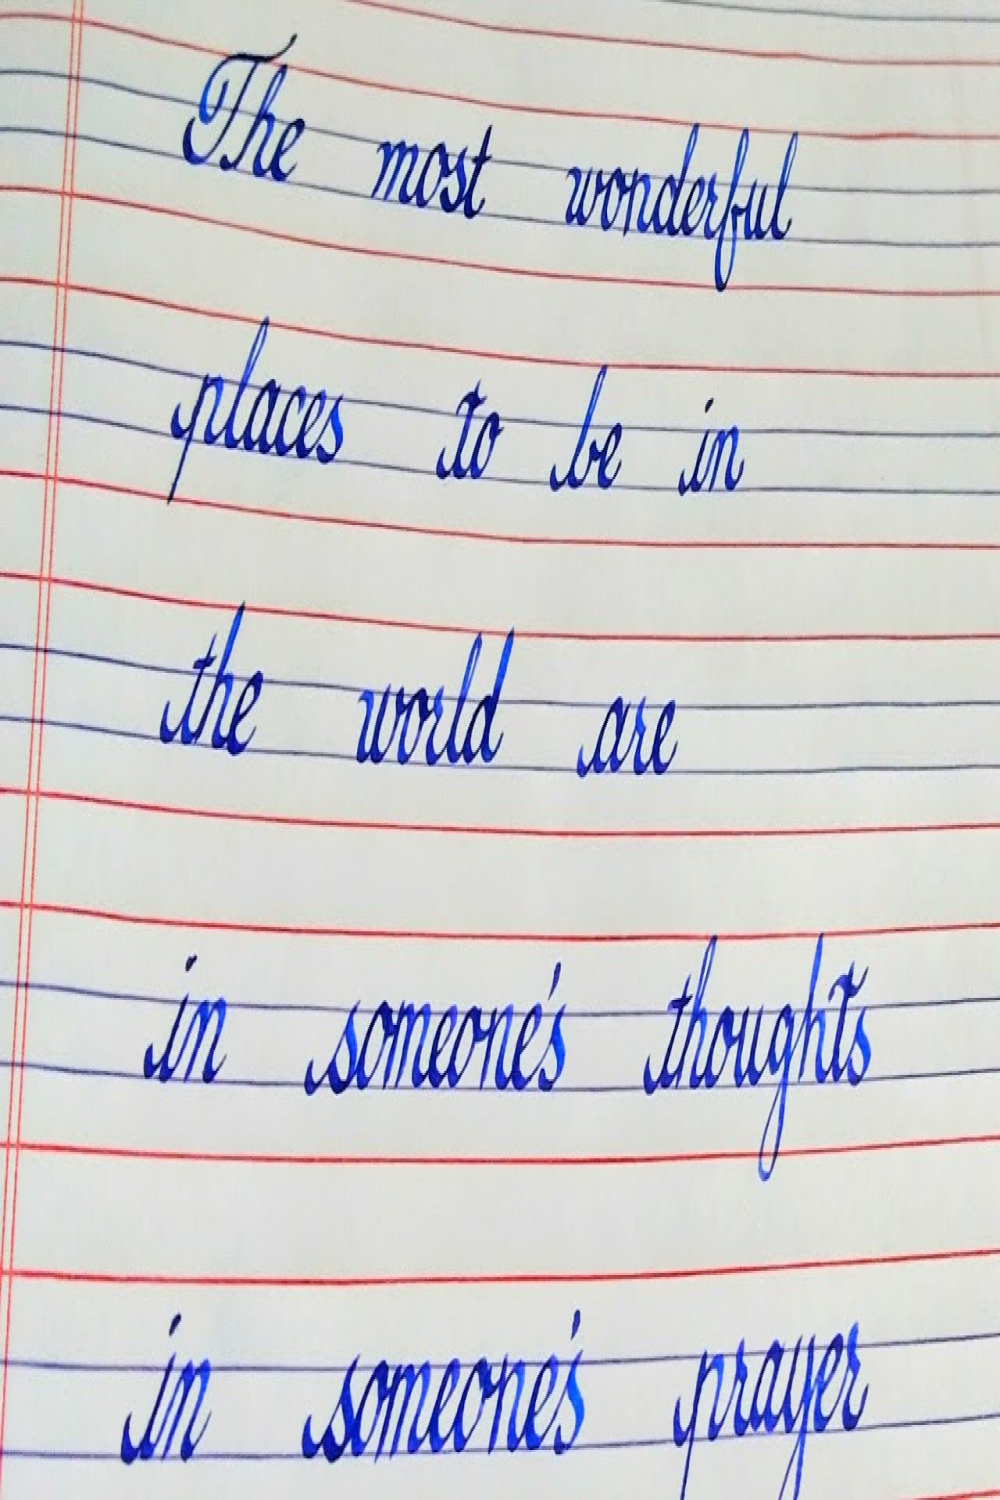 The most wonderful
places to be in
the world are
in someone's thoughts
in someone's prayer